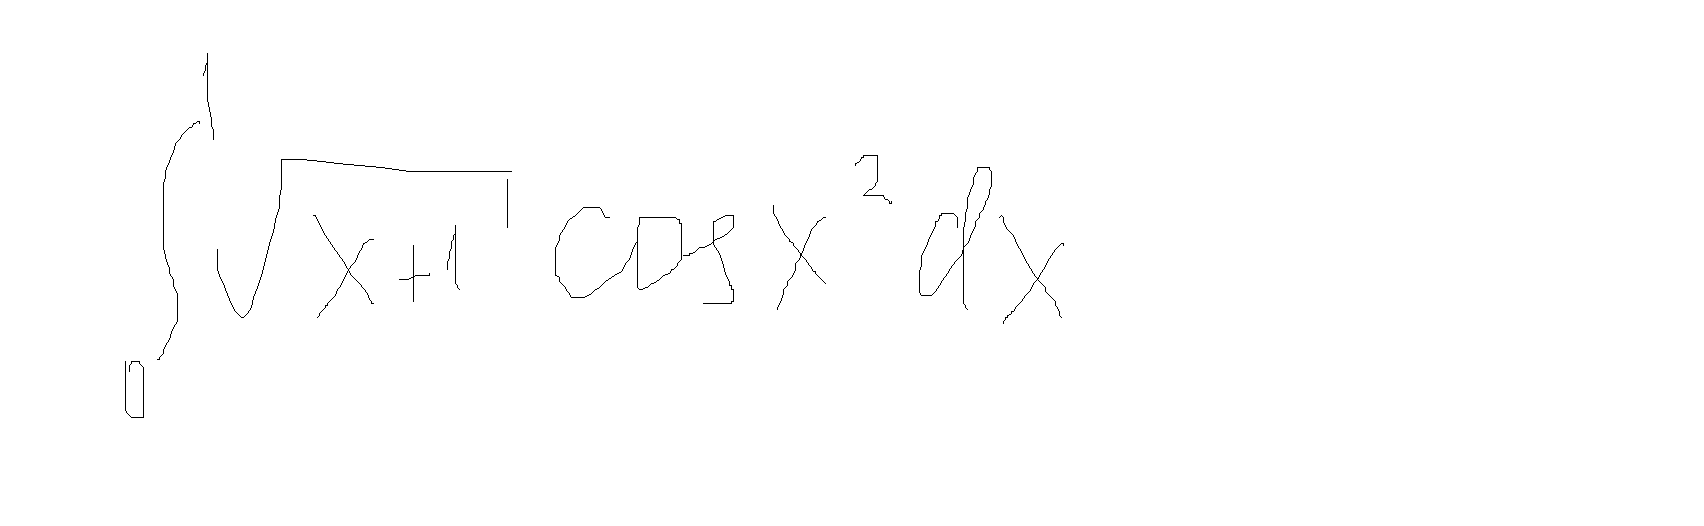 ∫₀¹ √(x+1) cos x² dx